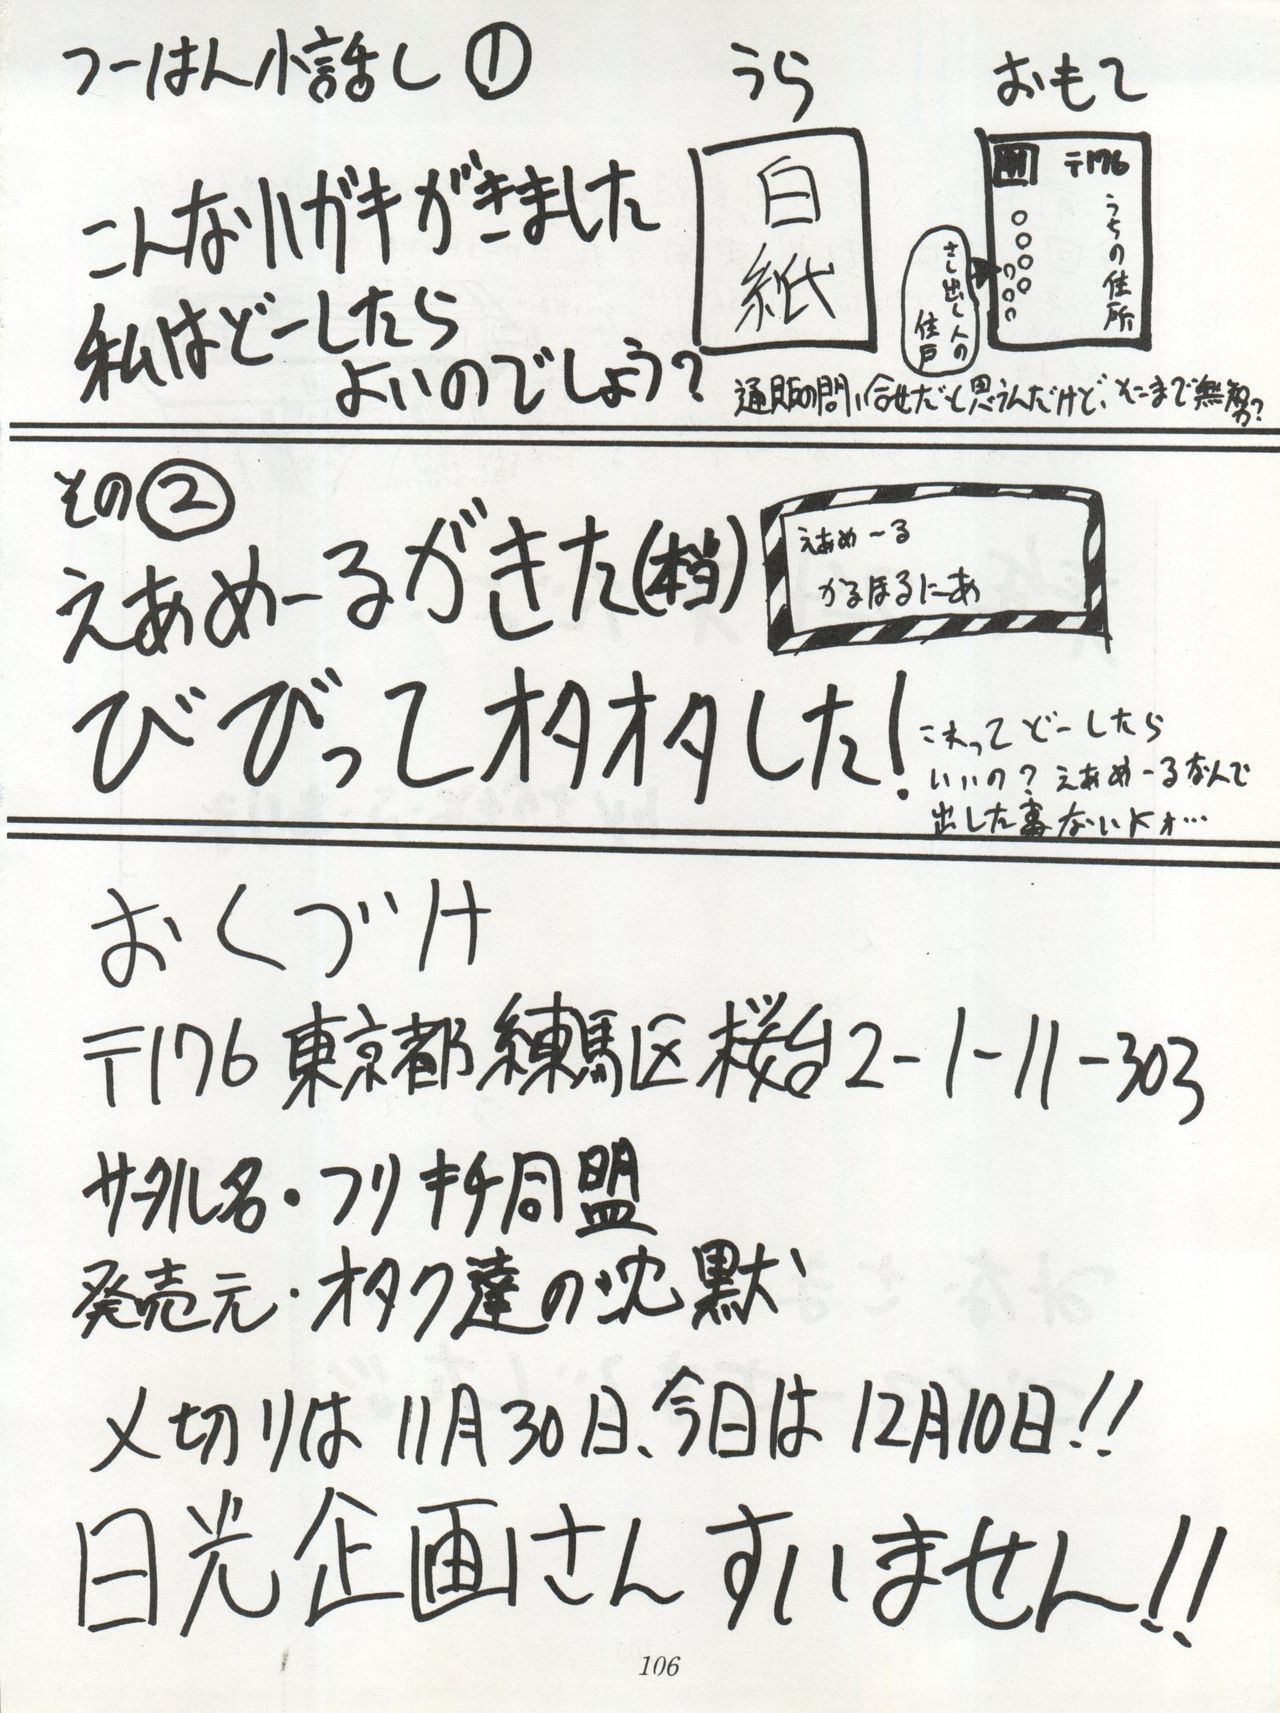 つーはん小話し ①
うら
おもて
こんなハガキがきました
私はどーしたら
よいのでしょう?
白紙
〒176
うちの住所
○○○○○○○
さし出し人の
住戸
通販の問い合せだと思うんだけど、そこまで無知?
その②
えあめーるがきた(本当)
えあめーる
かるほるにあ
びびってオタオタした!
これってどーしたら
いいの? えあめーるなんて
出した事ないよォ…
おくづけ
〒176 東京都練馬区桜台2-1-11-303
サークル名・フリキチ同盟
発売元・オタク達の沈黙
〆切りは11月30日、今日は12月10日!!
日光企画さんすいません!!
106